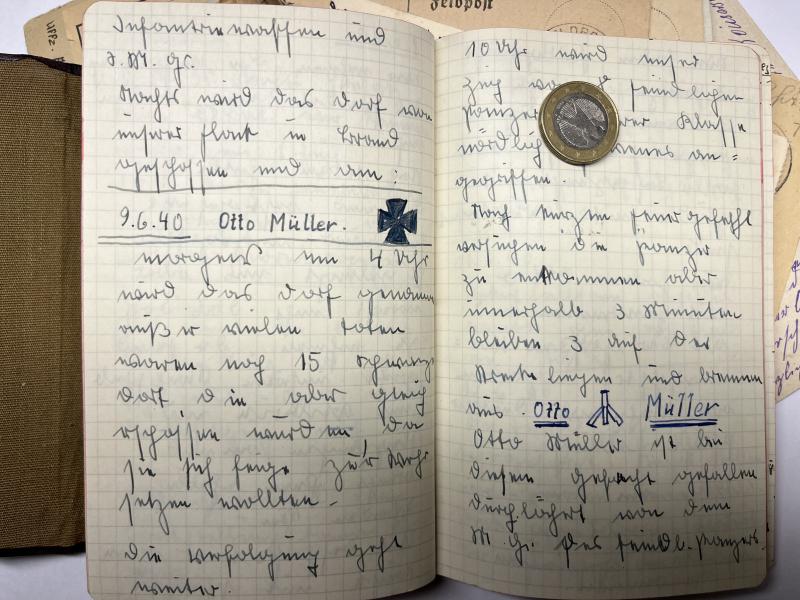 Feldpost
Infanteriewaffen und
s. M. G.
Nachts wird das Dorf von
unserer Flak in Brand
geschossen und am:
9.6.40 Otto Müller.
morgens um 4 Uhr
wird das Dorf genommen
außer vielen Toten
waren noch 15
dort die aber gleich
erschossen wurden, da
sie sich feige zur Wehr
setzen wollten.
Die Verfolgung geht
weiter.
10 Uhr wird unser
Zug feindlichen
Panzer Klasse
nördlich an=
gegriffen.
Nach kurzem Feuergefecht
versuchen die Panzer
zu entkommen aber
innerhalb 3 Minuten
bleiben 3 auf der
Strecke liegen und brennen
aus. Otto Müller
Otto Müller ist bei
diesem Gefecht gefallen
durchlöchert von dem
M. G. des feindl. Panzers.